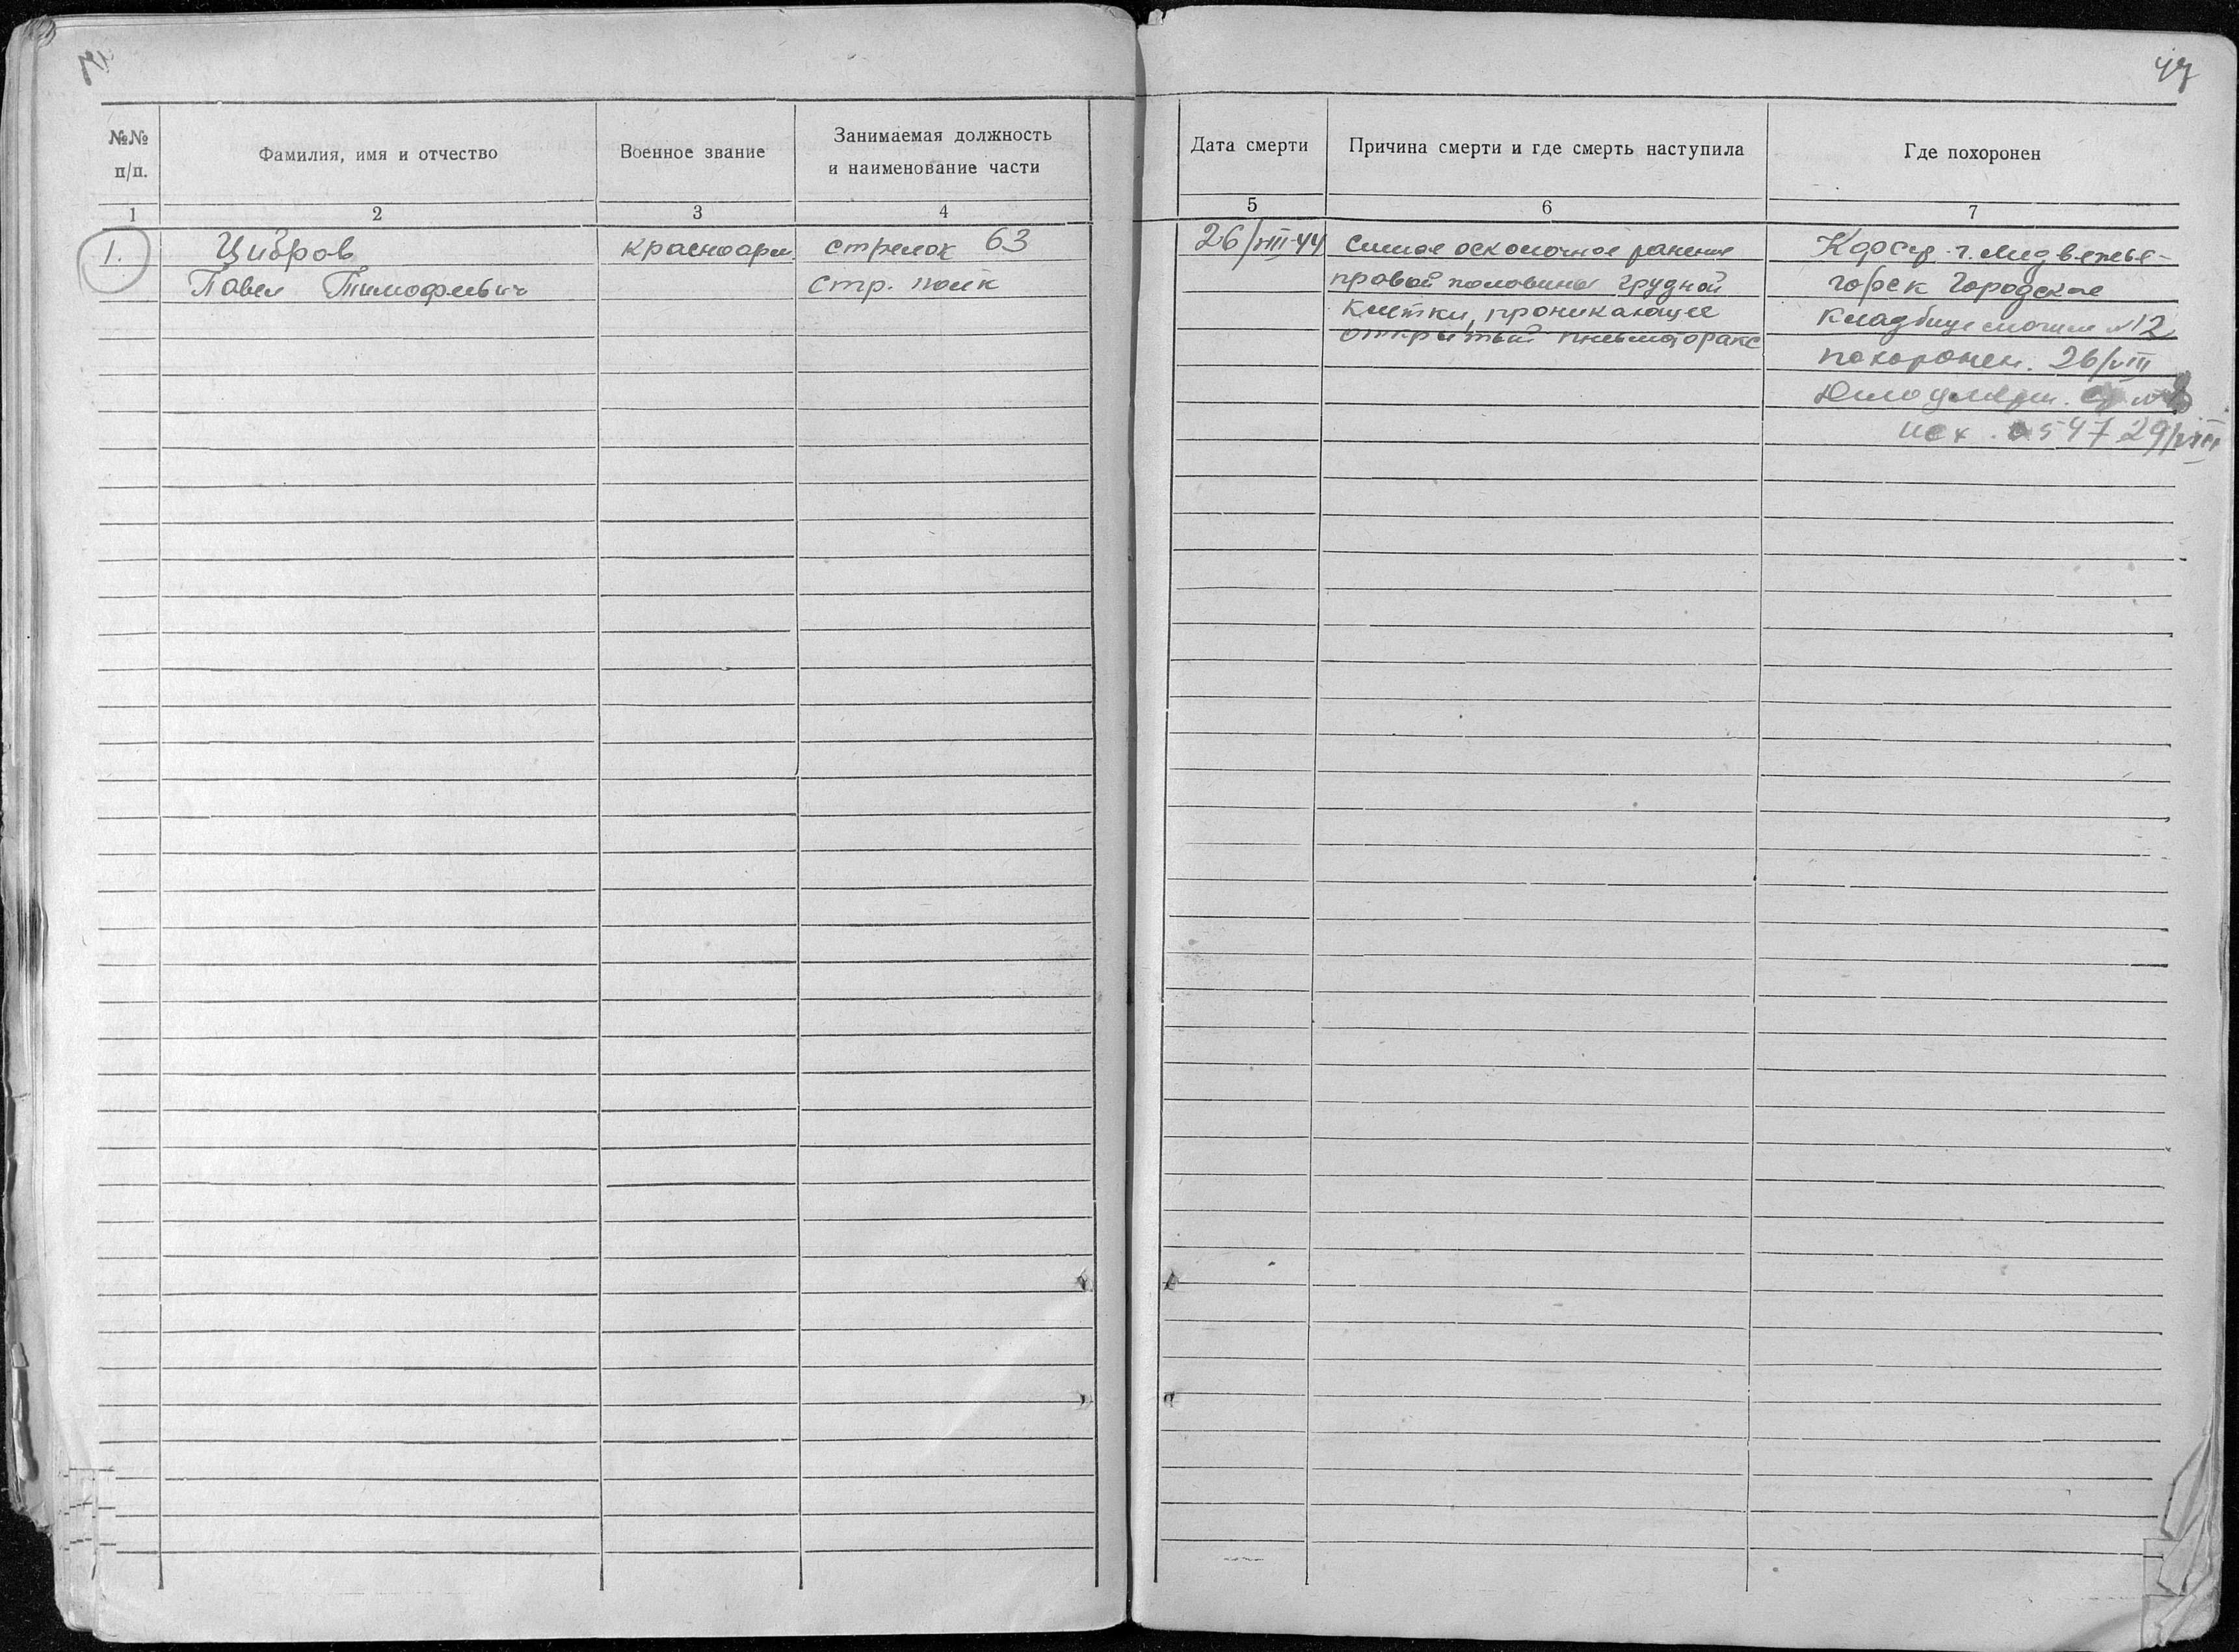 47
№№ п/п.
Фамилия, имя и отчество
Военное звание
Занимаемая должность
и наименование части
Дата смерти
Причина смерти и где смерть наступила
Где похоронен
1 2 3 4 5 6 7
1. Цибров красноарм стрелок 63 26/VIII-44 слепое осколочное ранение Кфсср. г. Медвежье-
Павел Тимофеевич стр. полк правой половины грудной горск Городское
клетки, проникающее кладбище могила №12
открытый пневмоторакс похоронен. 26/VIII
исх. 0547 29/VIII